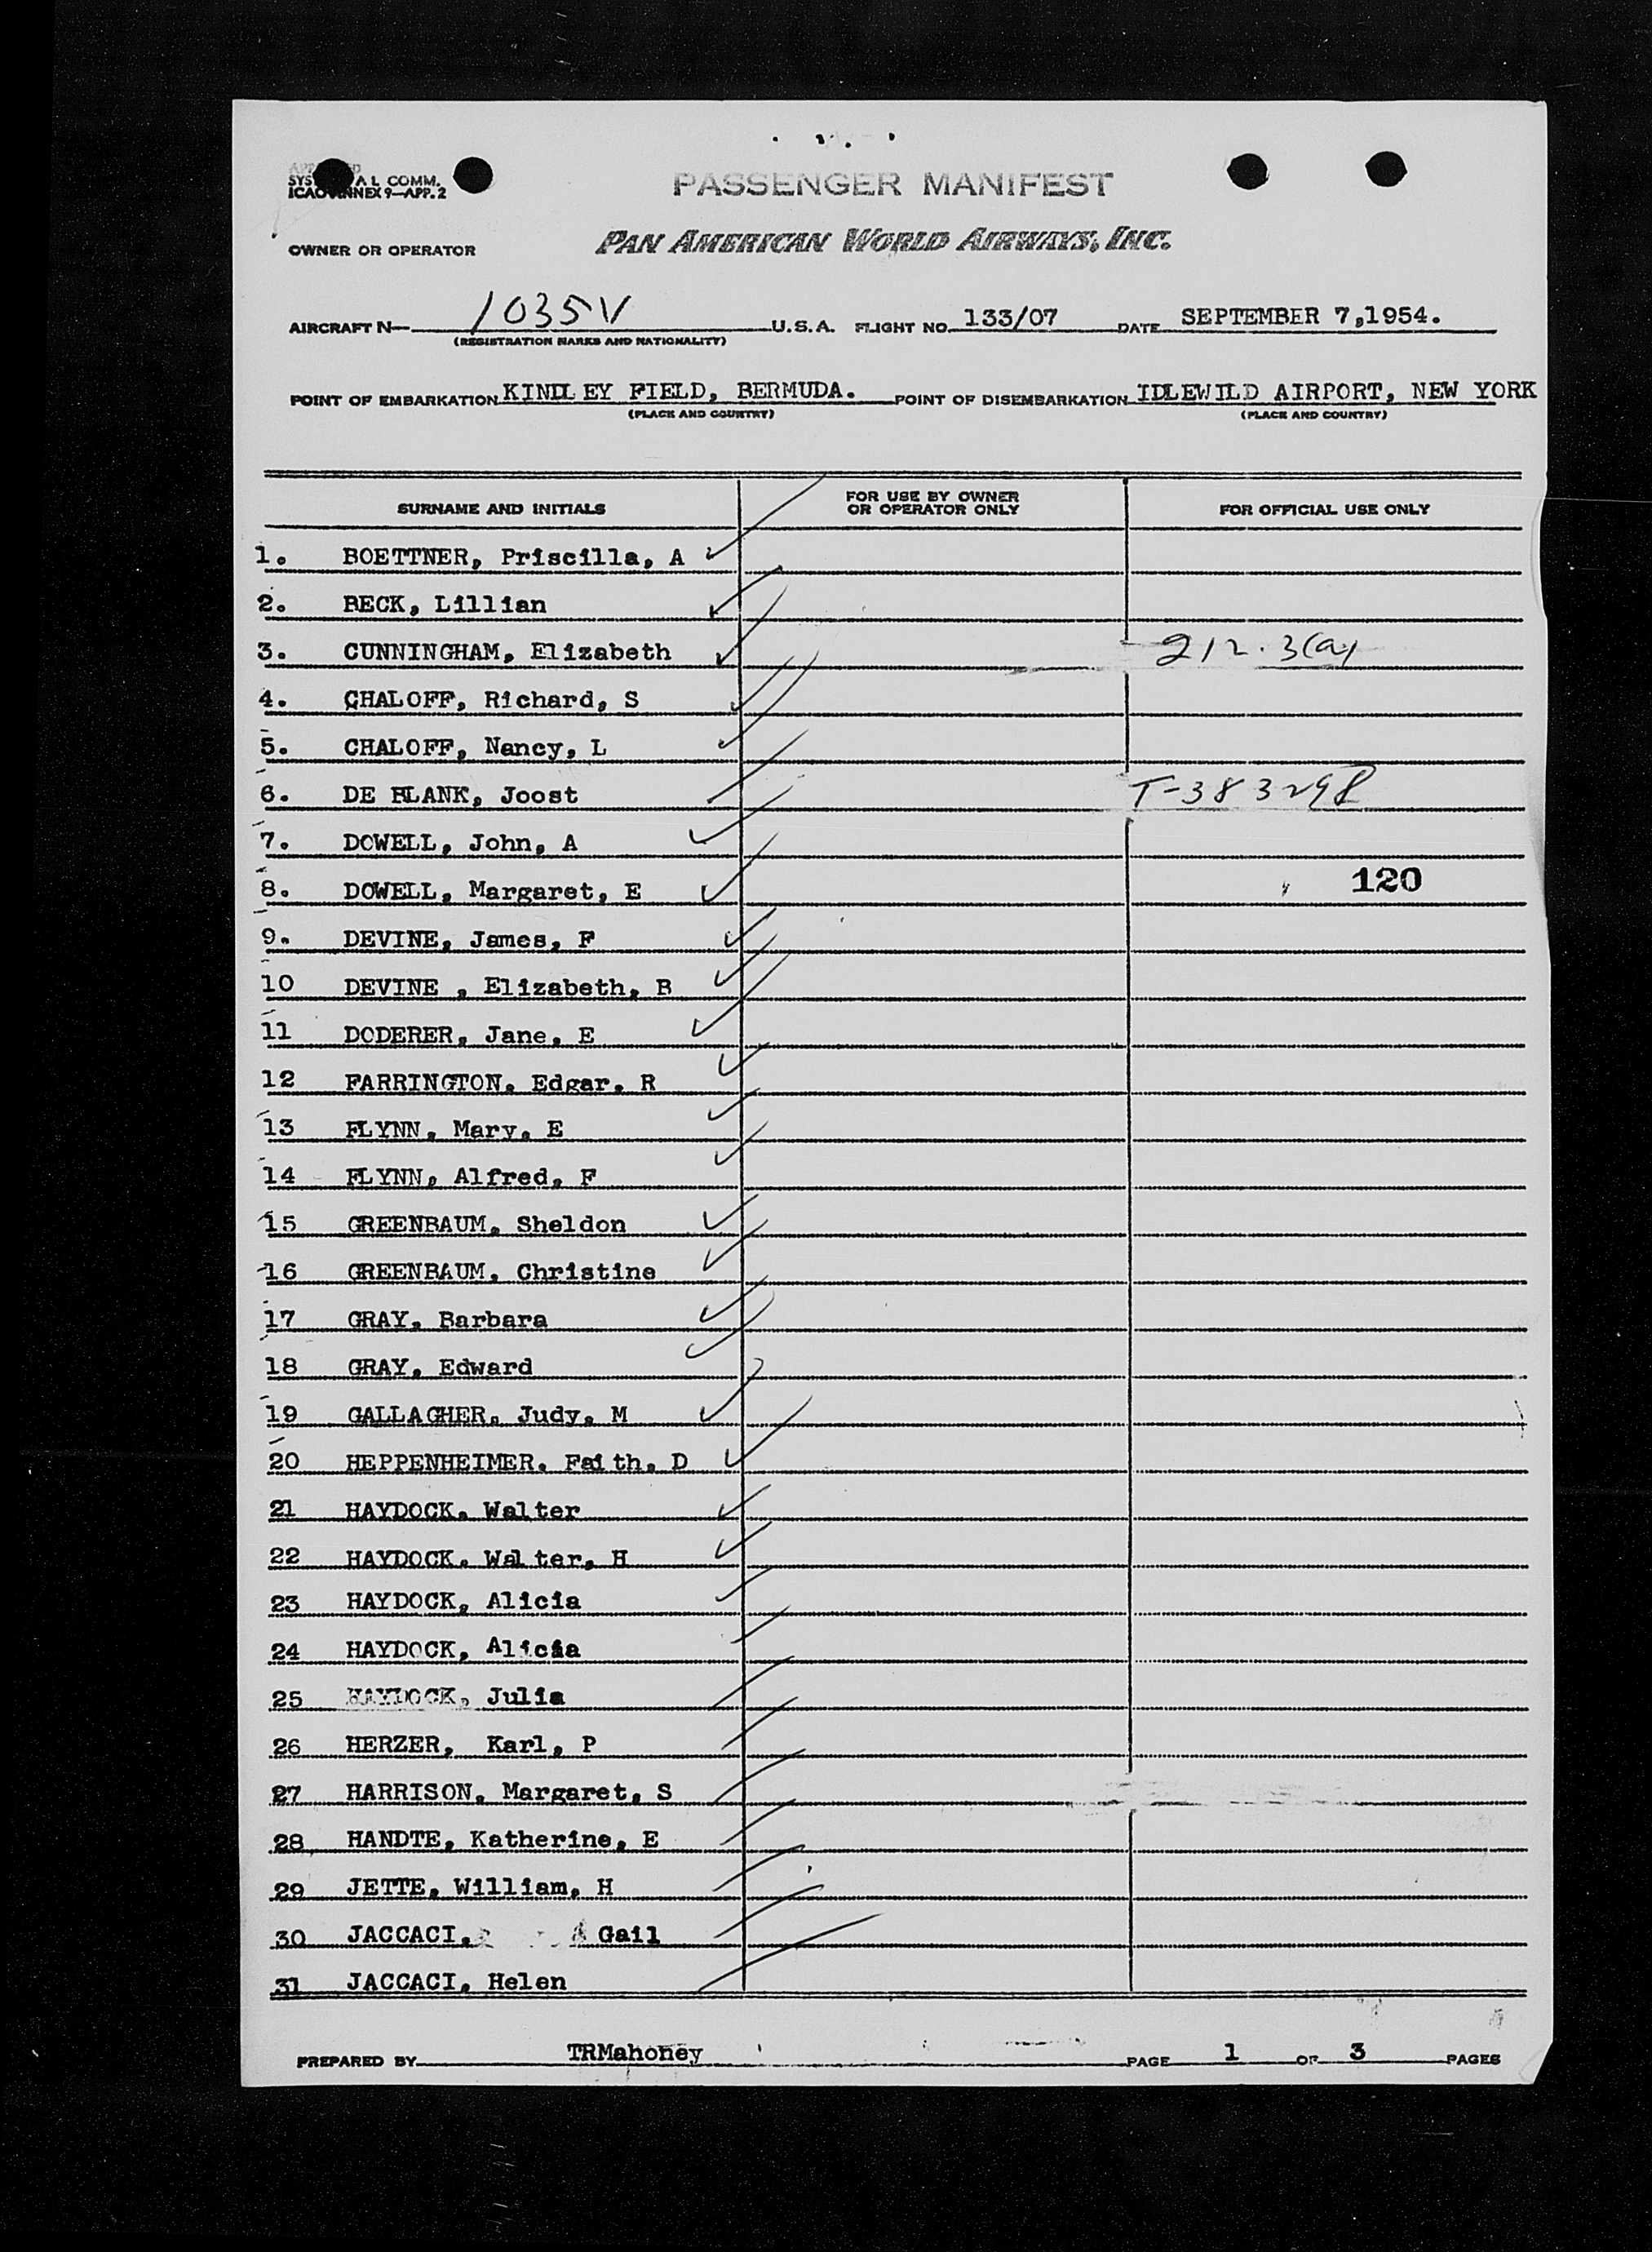 SYS AL COMM.
ICAO ANNEX 9—APP. 2
PASSENGER MANIFEST
OWNER OR OPERATOR PAN AMERICAN WORLD AIRWAYS, INC.
AIRCRAFT N— 1035V U.S.A. FLIGHT NO. 133/07 DATE SEPTEMBER 7,1954.
(REGISTRATION MARKS AND NATIONALITY)
POINT OF EMBARKATION KINDLEY FIELD, BERMUDA. POINT OF DISEMBARKATION IDLEWILD AIRPORT, NEW YORK
(PLACE AND COUNTRY) (PLACE AND COUNTRY)
SURNAME AND INITIALS FOR USE BY OWNER OR OPERATOR ONLY FOR OFFICIAL USE ONLY
1. BOETTNER, Priscilla, A
2. BECK, Lillian
3. CUNNINGHAM, Elizabeth 212.3(a)
4. CHALOFF, Richard, S
5. CHALOFF, Nancy, L
6. DE BLANK, Joost T-383298
7. DOWELL, John, A
8. DOWELL, Margaret, E 120
9. DEVINE, James, F
10 DEVINE , Elizabeth, B
11 DODERER, Jane, E
12 FARRINGTON, Edgar, R
13 FLYNN, Mary, E
14 FLYNN, Alfred, F
15 GREENBAUM, Sheldon
16 GREENBAUM, Christine
17 GRAY, Barbara
18 GRAY, Edward
19 GALLAGHER, Judy, M
20 HEPPENHEIMER, Faith, D
21 HAYDOCK, Walter
22 HAYDOCK, Walter, H
23 HAYDOCK, Alicia
24 HAYDOCK, Alicia
25 HAYDOCK, Julia
26 HERZER, Karl, P
27 HARRISON, Margaret, S
28 HANDTE, Katherine, E
29 JETTE, William, H
30 JACCACI, Gail
31 JACCACI, Helen
PREPARED BY TRMahoney PAGE 1 OF 3 PAGES